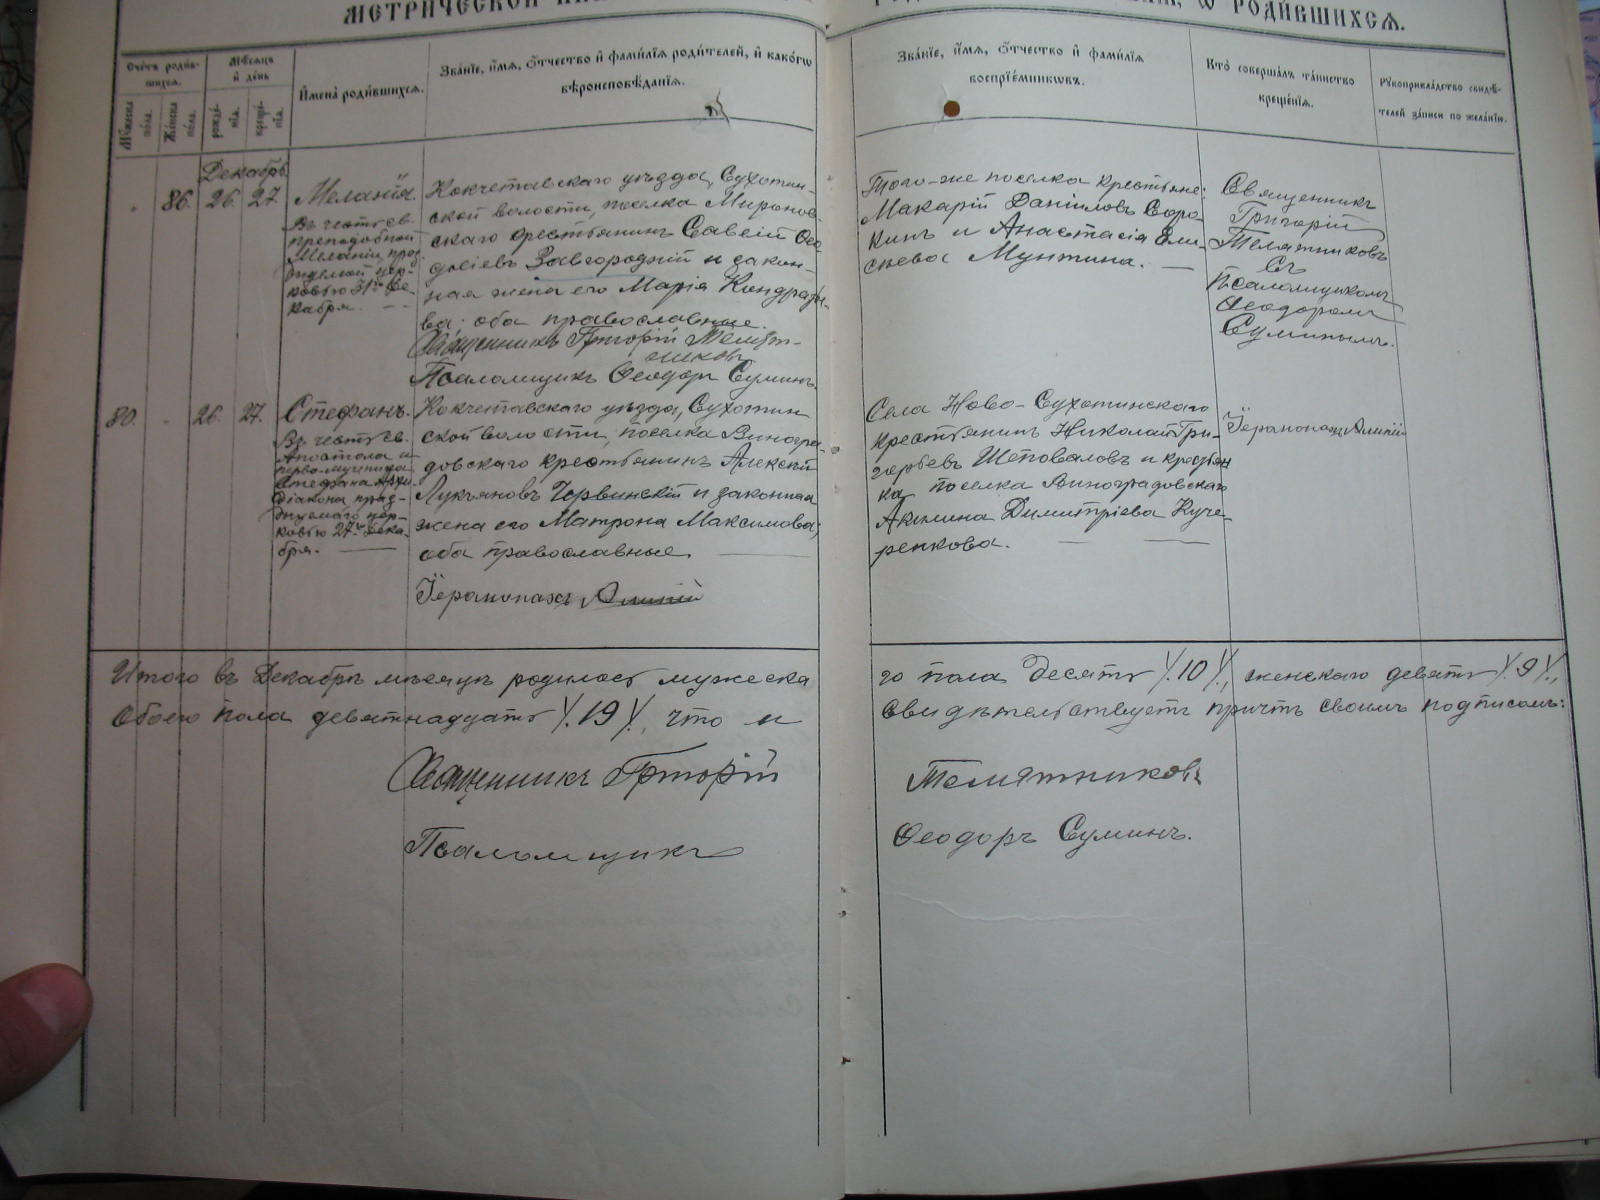 МЕТРИЧЕСКОЙ
Ѡ РОДИ́ВШИХСѦ.
Сче́тъ роди́в-
шихсѧ.
Мѣ́сѧцъ
и҆ де́нь
Мꙋ́жеска
по́ла.
Же́нска
по́ла.
рожде́-
нїѧ.
креще́-
нїѧ.
И҆мена̀ роди́вшихсѧ.
Зва́нїе, и҆́мѧ, ѻ҆́тчество и҆ фами́лїѧ роди́телей, и҆ како́гѡ
вѣроисповѣ́данїѧ.
Зва́нїе, и҆́мѧ, ѻ҆́тчество и҆ фами́лїѧ
воспрїе́мниковъ.
Кто̀ соверша́лъ та́инство
креще́нїѧ.
Рꙋкоприкла́дство свидѣ́-
телей за́писи по жела́нїю.
Декабрь
86. 26. 27
Меланія.
Въ честь св.
преподобной
Меланіи, праз
днуемой цер-
ковью 31го Де-
кабря.
Кокчетавскаго уѣзда, Сухотин-
ской волости, поселка Миронов-
скаго крестьянинъ Савелій Ѳео
досіевъ Завгородній и закон-
ная жена его Марія Кондрать-
ва; оба православные.
Священникъ Григорій Телят-
никовъ
Псаломщикъ Ѳеодоръ Суминъ.
Того-же поселка крестьяне:
Макарій Даніиловъ Соро
кинъ и Анастасія Ели
сѣева Мунтина.
Священникъ
Григорій
Телятниковъ
съ
Псаломщикомъ
Ѳеодоромъ
Суминымъ.
80. 26. 27.
Стефанъ.
Въ честь св.
Апостола и
перво-мученика
Стефана Архи
діакона празд-
нуемаго цер-
ковью 27го Дека-
бря.
Кокчетавскаго уѣзда, Сухотин
ской волости, поселка Виногра-
довскаго крестьянинъ Алексій
Лукьяновъ Червинскій и законная
жена его Матрона Максимова;
оба православные.
Іеромонахъ Алипій
Села Ново-Сухотинскаго
крестьянинъ Николай Гри-
горьевъ Шеповаловъ и крестьян
ка поселка Виноградовскаго
Акилина Димитріева Куче-
ренкова.
Іеромонахъ Алипій
Итого въ Декабрѣ мѣсяцѣ родилось мужеска
го пола десять /.10/., женскаго девять /.9/.,
Обоего пола девятнадцать /.19/., что и
свидѣтельствуетъ причтъ своимъ подписомъ:
Священникъ Григорій
Телятниковъ
Псаломщикъ
Ѳеодоръ Суминъ.